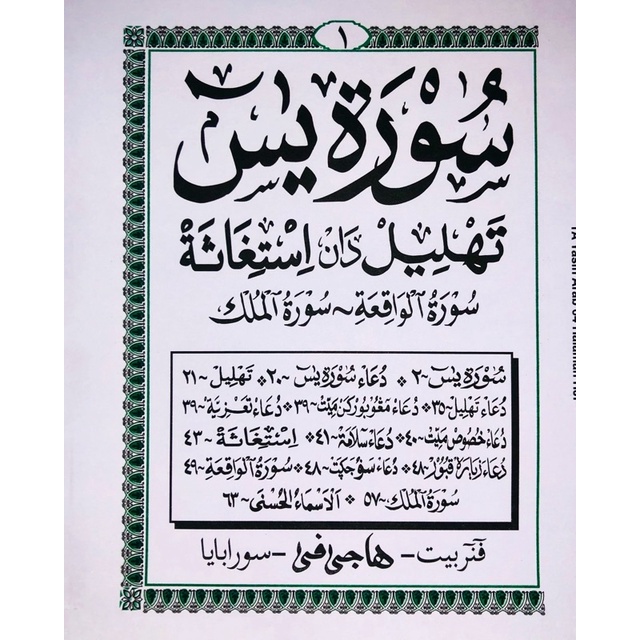 ١
سُوْرَةُ يٰسٓ
تَهْلِيْل دَانْ اِسْتِغَاثَةْ
سُوْرَةُ الْوَاقِعَةِ ~ سُوْرَةُ الْمُلْكِ
سُوْرَة يٰسٓ ~ ٢ * دُعَاء سُوْرَة يٰسٓ ~ ٢٠ * تَهْلِيْل ~ ٢١
دُعَاء تَهْلِيْل ~ ٣٥ * دُعَاء مَڠُوْبُوْركَن مَيِّتْ ~ ٣٩ * دُعَاء تَعْزِيَة ~ ٣٩
دُعَاء خُصُوْص مَيِّتْ ~ ٤٠ * دُعَاء سَلَامَة ~ ٤١ * اِسْتِغَاثَة ~ ٤٣
دُعَاء زِيَارَة قُبُوْر ~ ٤٨ * دُعَاء سَوْجِكَتْ ~ ٤٨ * سُوْرَةُ الْوَاقِعَةِ ~ ٤٩
سُوْرَةُ الْمُلْكِ ~ ٥٧ * اَلْاَسْمَاءُ الْحُسْنٰى ~ ٦٣
ڤنربيت - هاجى فىى - سورابايا